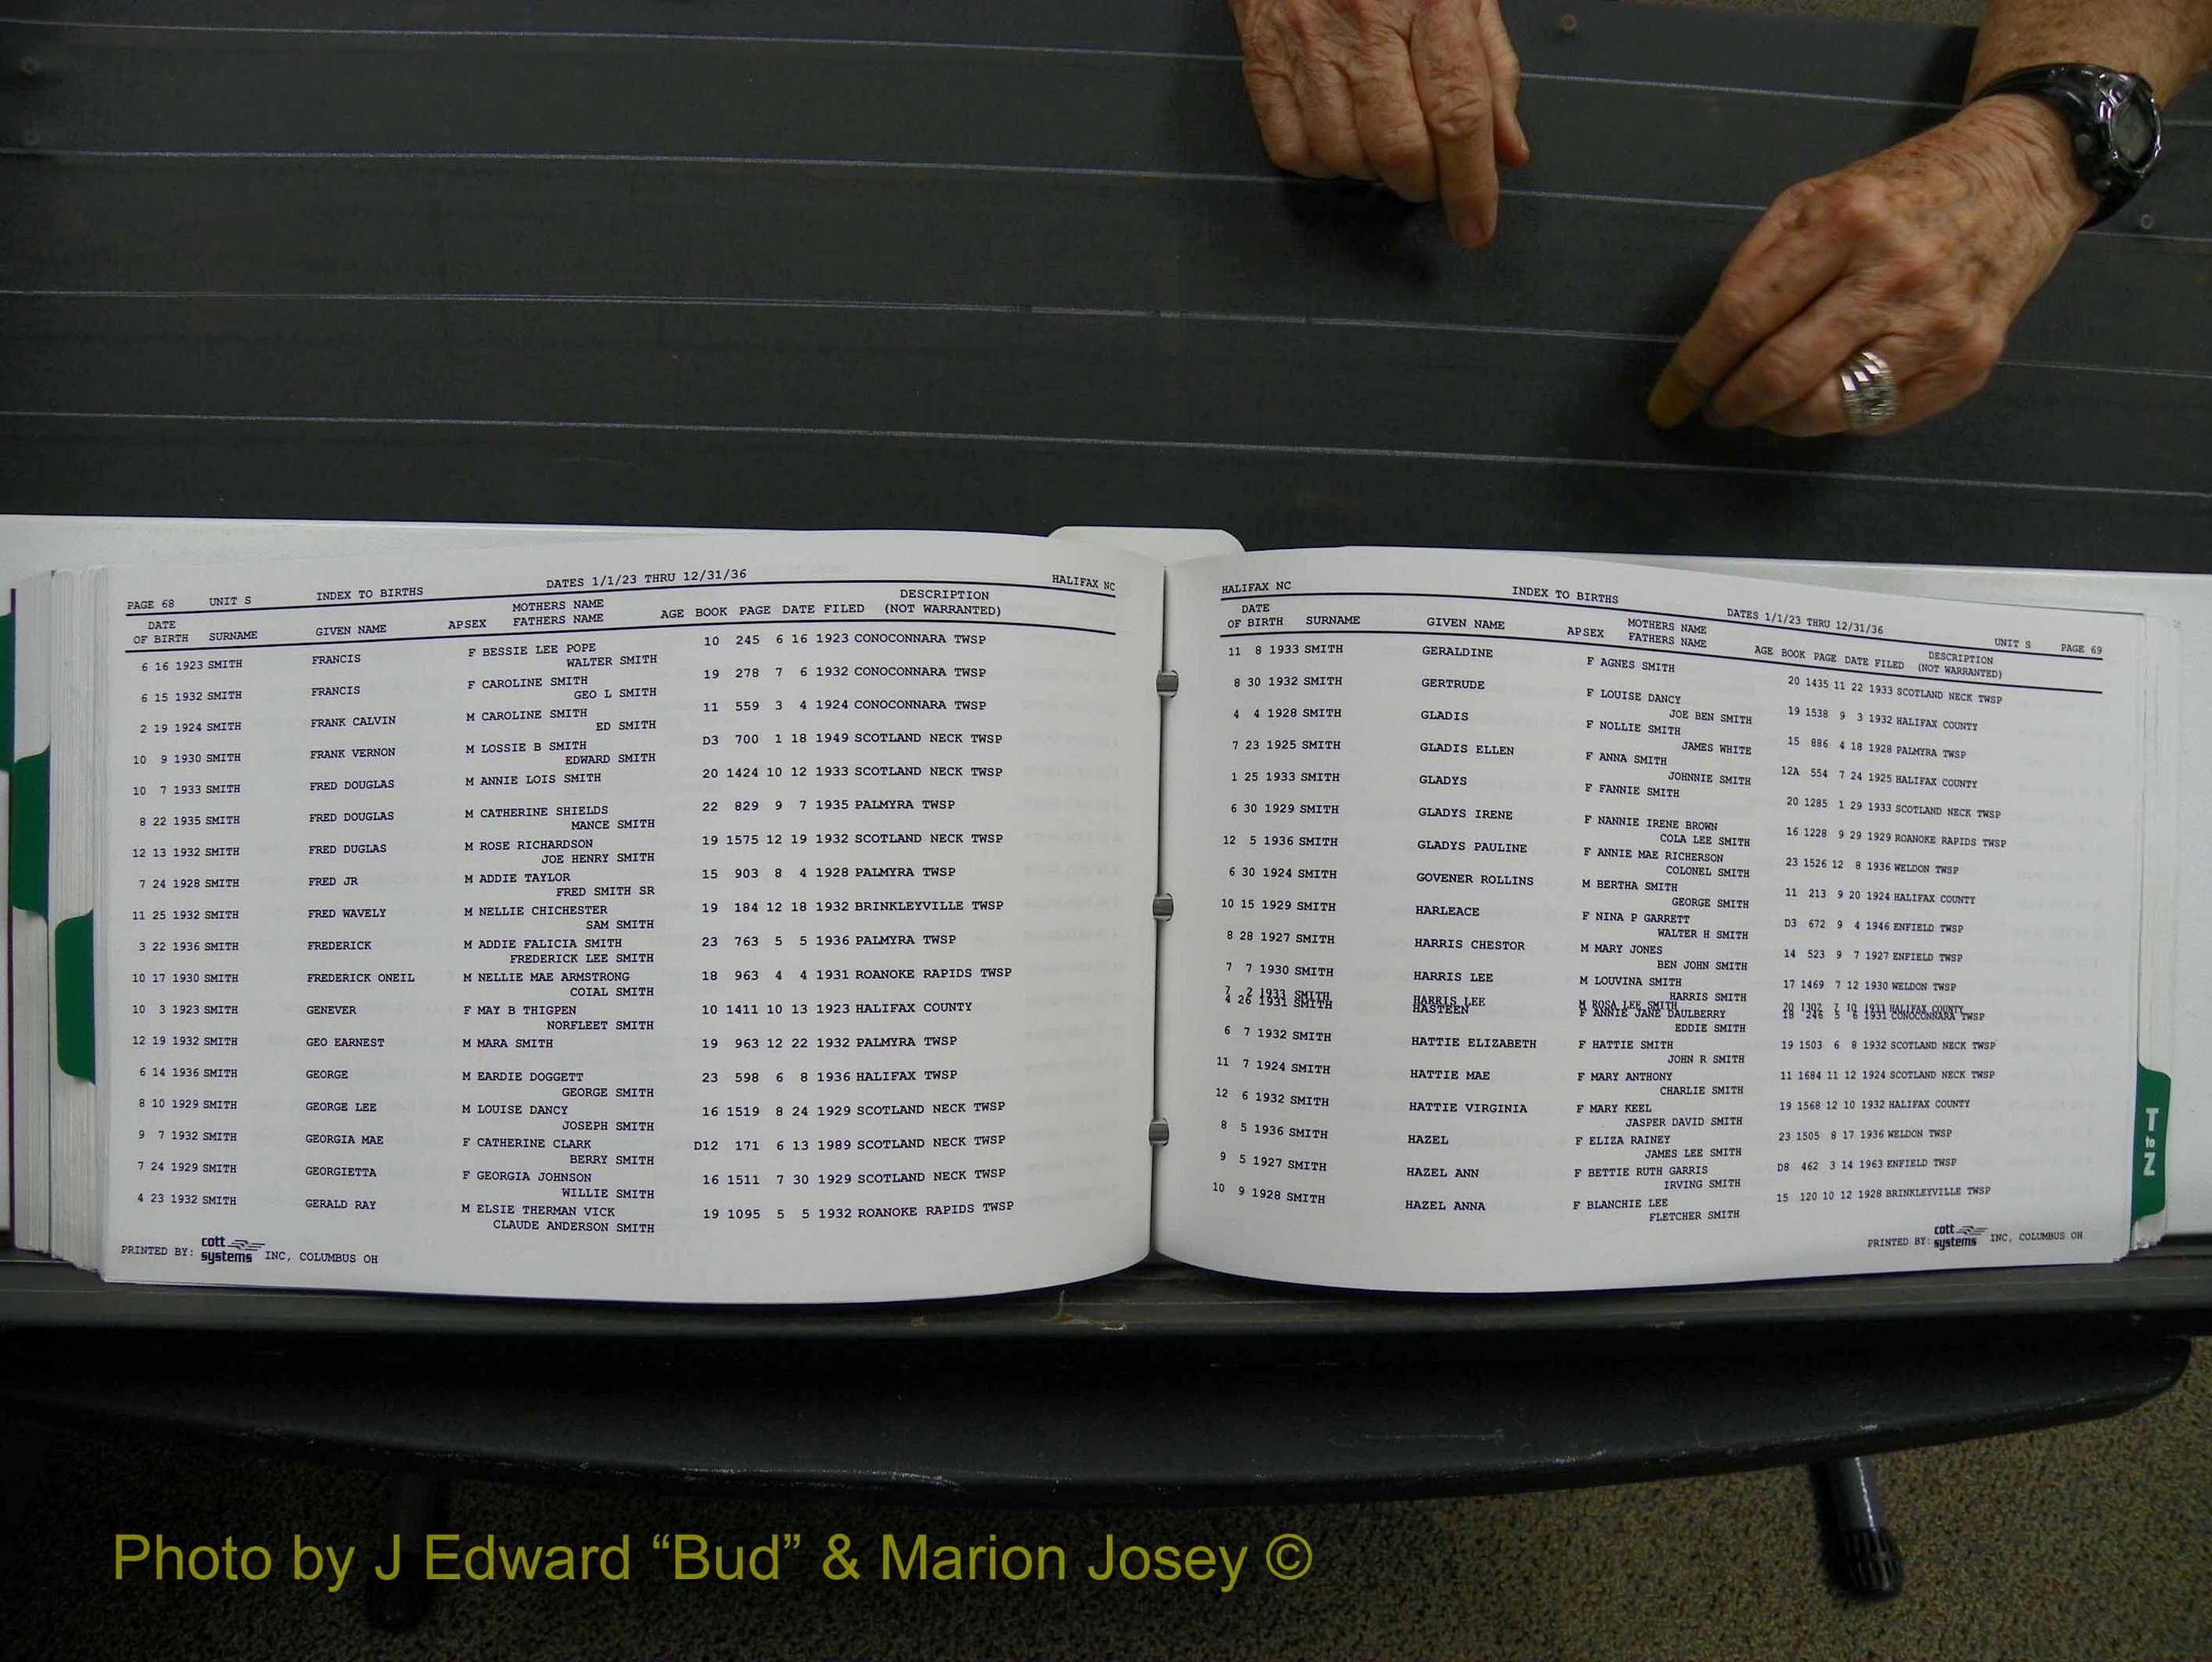 PAGE 68 UNIT S INDEX TO BIRTHS DATES 1/1/23 THRU 12/31/36 HALIFAX NC
DATE MOTHERS NAME DESCRIPTION
OF BIRTH SURNAME GIVEN NAME APSEX FATHERS NAME AGE BOOK PAGE DATE FILED (NOT WARRANTED)
6 16 1923 SMITH FRANCIS F BESSIE LEE POPE 10 245 6 16 1923 CONOCONNARA TWSP
WALTER SMITH
6 15 1932 SMITH FRANCIS F CAROLINE SMITH 19 278 7 6 1932 CONOCONNARA TWSP
GEO L SMITH
2 19 1924 SMITH FRANK CALVIN M CAROLINE SMITH 11 559 3 4 1924 CONOCONNARA TWSP
ED SMITH
10 9 1930 SMITH FRANK VERNON M LOSSIE B SMITH D3 700 1 18 1949 SCOTLAND NECK TWSP
EDWARD SMITH
10 7 1933 SMITH FRED DOUGLAS M ANNIE LOIS SMITH 20 1424 10 12 1933 SCOTLAND NECK TWSP
8 22 1935 SMITH FRED DOUGLAS M CATHERINE SHIELDS 22 829 9 7 1935 PALMYRA TWSP
MANCE SMITH
12 13 1932 SMITH FRED DUGLAS M ROSE RICHARDSON 19 1575 12 19 1932 SCOTLAND NECK TWSP
JOE HENRY SMITH
7 24 1928 SMITH FRED JR M ADDIE TAYLOR 15 903 8 4 1928 PALMYRA TWSP
FRED SMITH SR
11 25 1932 SMITH FRED WAVELY M NELLIE CHICHESTER 19 184 12 18 1932 BRINKLEYVILLE TWSP
SAM SMITH
3 22 1936 SMITH FREDERICK M ADDIE FALICIA SMITH 23 763 5 5 1936 PALMYRA TWSP
FREDERICK LEE SMITH
10 17 1930 SMITH FREDERICK ONEIL M NELLIE MAE ARMSTRONG 18 963 4 4 1931 ROANOKE RAPIDS TWSP
COIAL SMITH
10 3 1923 SMITH GENEVER F MAY B THIGPEN 10 1411 10 13 1923 HALIFAX COUNTY
NORFLEET SMITH
12 19 1932 SMITH GEO EARNEST M MARA SMITH 19 963 12 22 1932 PALMYRA TWSP
6 14 1936 SMITH GEORGE M EARDIE DOGGETT 23 598 6 8 1936 HALIFAX TWSP
GEORGE SMITH
8 10 1929 SMITH GEORGE LEE M LOUISE DANCY 16 1519 8 24 1929 SCOTLAND NECK TWSP
JOSEPH SMITH
9 7 1932 SMITH GEORGIA MAE F CATHERINE CLARK D12 171 6 13 1989 SCOTLAND NECK TWSP
BERRY SMITH
7 24 1929 SMITH GEORGIETTA F GEORGIA JOHNSON 16 1511 7 30 1929 SCOTLAND NECK TWSP
WILLIE SMITH
4 23 1932 SMITH GERALD RAY M ELSIE THERMAN VICK 19 1095 5 5 1932 ROANOKE RAPIDS TWSP
CLAUDE ANDERSON SMITH
PRINTED BY: cott systems INC, COLUMBUS OH
HALIFAX NC INDEX TO BIRTHS DATES 1/1/23 THRU 12/31/36 UNIT S PAGE 69
DATE MOTHERS NAME DESCRIPTION
OF BIRTH SURNAME GIVEN NAME APSEX FATHERS NAME AGE BOOK PAGE DATE FILED (NOT WARRANTED)
11 8 1933 SMITH GERALDINE F AGNES SMITH 20 1435 11 22 1933 SCOTLAND NECK TWSP
8 30 1932 SMITH GERTRUDE F LOUISE DANCY 19 1538 9 3 1932 HALIFAX COUNTY
JOE BEN SMITH
4 4 1928 SMITH GLADIS F NOLLIE SMITH 15 886 4 18 1928 PALMYRA TWSP
JAMES WHITE
7 23 1925 SMITH GLADIS ELLEN F ANNA SMITH 12A 554 7 24 1925 HALIFAX COUNTY
JOHNNIE SMITH
1 25 1933 SMITH GLADYS F FANNIE SMITH 20 1285 1 29 1933 SCOTLAND NECK TWSP
6 30 1929 SMITH GLADYS IRENE F NANNIE IRENE BROWN 16 1228 9 29 1929 ROANOKE RAPIDS TWSP
COLA LEE SMITH
12 5 1936 SMITH GLADYS PAULINE F ANNIE MAE RICHERSON 23 1526 12 8 1936 WELDON TWSP
COLONEL SMITH
6 30 1924 SMITH GOVENER ROLLINS M BERTHA SMITH 11 213 9 20 1924 HALIFAX COUNTY
GEORGE SMITH
10 15 1929 SMITH HARLEACE F NINA P GARRETT D3 672 9 4 1946 ENFIELD TWSP
WALTER H SMITH
8 28 1927 SMITH HARRIS CHESTOR M MARY JONES 14 523 9 7 1927 ENFIELD TWSP
BEN JOHN SMITH
7 7 1930 SMITH HARRIS LEE M LOUVINA SMITH 17 1469 7 12 1930 WELDON TWSP
HARRIS SMITH
7 2 1933 SMITH HARRIS LEE M ROSA LEE SMITH 20 1302 7 10 1933 HALIFAX COUNTY
4 26 1931 SMITH HASTEEN F ANNIE JANE DAULBERRY 18 246 5 6 1931 CONOCONNARA TWSP
EDDIE SMITH
6 7 1932 SMITH HATTIE ELIZABETH F HATTIE SMITH 19 1503 6 8 1932 SCOTLAND NECK TWSP
JOHN R SMITH
11 7 1924 SMITH HATTIE MAE F MARY ANTHONY 11 1684 11 12 1924 SCOTLAND NECK TWSP
CHARLIE SMITH
12 6 1932 SMITH HATTIE VIRGINIA F MARY KEEL 19 1568 12 10 1932 HALIFAX COUNTY
JASPER DAVID SMITH
8 5 1936 SMITH HAZEL F ELIZA RAINEY 23 1505 8 17 1936 WELDON TWSP
JAMES LEE SMITH
9 5 1927 SMITH HAZEL ANN F BETTIE RUTH GARRIS D8 462 3 14 1963 ENFIELD TWSP
IRVING SMITH
10 9 1928 SMITH HAZEL ANNA F BLANCHIE LEE 15 120 10 12 1928 BRINKLEYVILLE TWSP
FLETCHER SMITH
PRINTED BY: cott systems INC, COLUMBUS OH
T
to
Z
Photo by J Edward “Bud” & Marion Josey ©